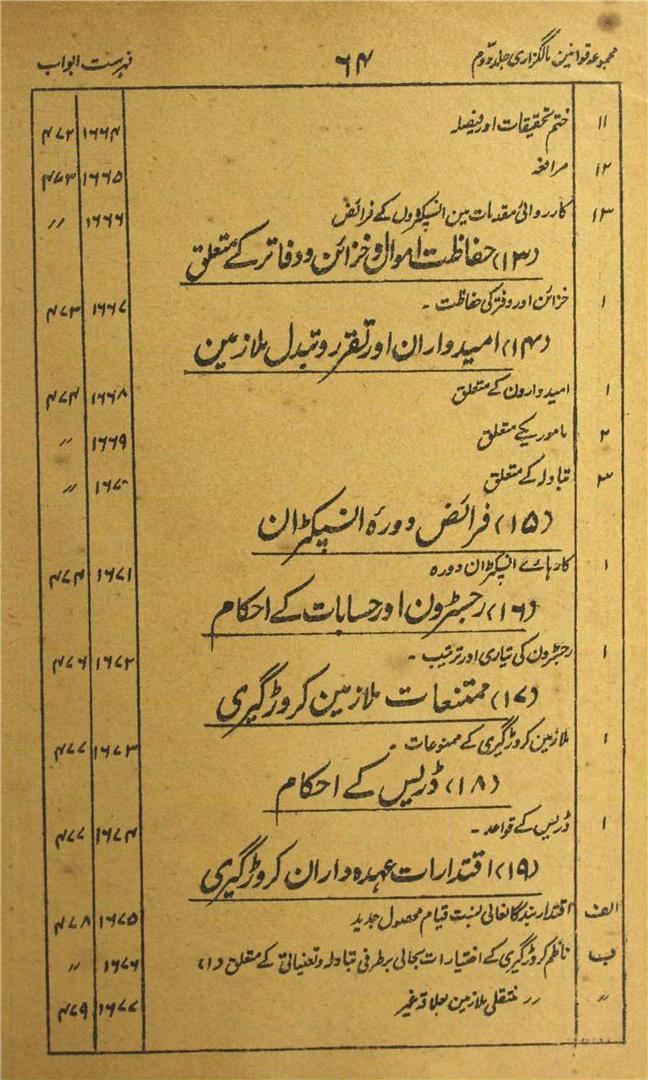 مجموعہ قوانین مالگزاری جلد دوم ۶۴ فہرست ابواب
۱۱ ختم تحقیقات اور فیصلہ ۱۶۶۴ ۴۷۲
۱۲ مرافعہ ۱۶۶۵ ۴۷۳
۱۳ کارروائی مقدمات مین انسپکٹروں کے فرائض ۱۶۶۶ ״
(۱۳) حفاظت اموال و خزائن و دفاتر کے متعلق
۱ خزائن اور دفتر کی حفاظت ۔ ۱۶۶۷ ۴۷۳
(۱۴) امیدواران اور تقرر و تبدل ملازمین
۱ امیدوارون کے متعلق ۱۶۶۸ ۴۷۴
۲ ماموریکے متعلق ۱۶۶۹ ״
۳ تبادلہ کے متعلق ۱۶۷۰ ״
(۱۵) فرائض دورۂ انسپکٹران
۱ کارہائے انسپکٹران دورہ ۱۶۷۱ ۴۷۴
(۱۶) رجسٹرون اور حسابات کے احکام
۱ رجسٹرون کی تیاری اور ترتیب ۔ ۱۶۷۲ ۴۷۶
(۱۷) ممتنعات ملازمین کروڑگیری
۱ ملازمین کروڑگیری کے ممنوعات ۔ ۱۶۷۳ ۴۷۷
(۱۸) ڈریس کے احکام
۱ ڈریس کے قواعد ۔ ۱۶۷۴ ۴۷۷
(۱۹) اقتدارات عہدہ داران کروڑگیری
الف اقتدار بندگانعالی نسبت قیام محصول جدید ۱۶۷۵ ۴۷۸
ب ناظم کروڑگیری کے اختیارات بحالی برطرفی تبادلہ و تعنیاتی کے متعلق (۱) ۱۶۷۶ ״
״ ״ منتقلی ملازمین بعلاقہ غیر ۱۶۷۷ ۴۷۹